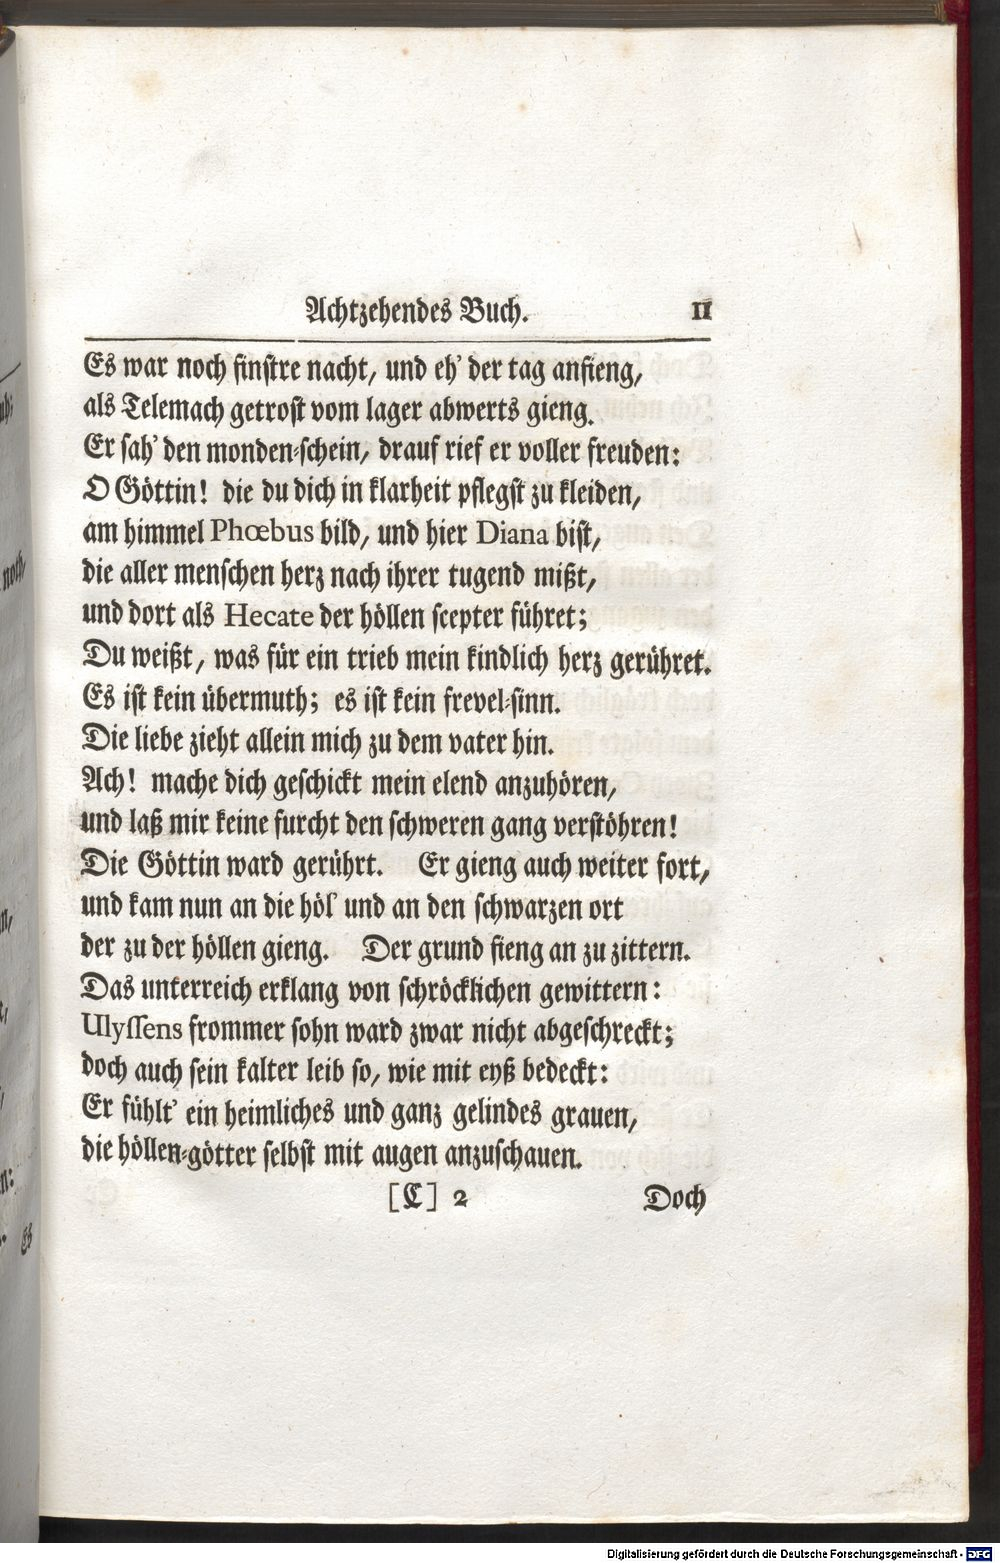 Achtzehendes Buch. 11
Es war noch finstre nacht, und eh' der tag anfieng,
als Telemach getrost vom lager abwerts gieng.
Er sah' den monden-schein, drauf rief er voller freuden:
O Göttin! die du dich in klarheit pflegst zu kleiden,
am himmel Phœbus bild, und hier Diana bist,
die aller menschen herz nach ihrer tugend mißt,
und dort als Hecate der höllen scepter führet;
Du weißt, was für ein trieb mein kindlich herz gerühret.
Es ist kein übermuth; es ist kein frevel-sinn.
Die liebe zieht allein mich zu dem vater hin.
Ach! mache dich geschickt mein elend anzuhören,
und laß mir keine furcht den schweren gang verstöhren!
Die Göttin ward gerührt. Er gieng auch weiter fort,
und kam nun an die höl' und an den schwarzen ort
der zu der höllen gieng. Der grund fieng an zu zittern.
Das unterreich erklang von schröcklichen gewittern:
Ulyssens frommer sohn ward zwar nicht abgeschreckt;
doch auch sein kalter leib so, wie mit eyß bedeckt:
Er fühlt' ein heimliches und ganz gelindes grauen,
die höllen-götter selbst mit augen anzuschauen.
[C] 2 Doch
noth,
Es
Digitalisierung gefördert durch die Deutsche Forschungsgemeinschaft - DFG